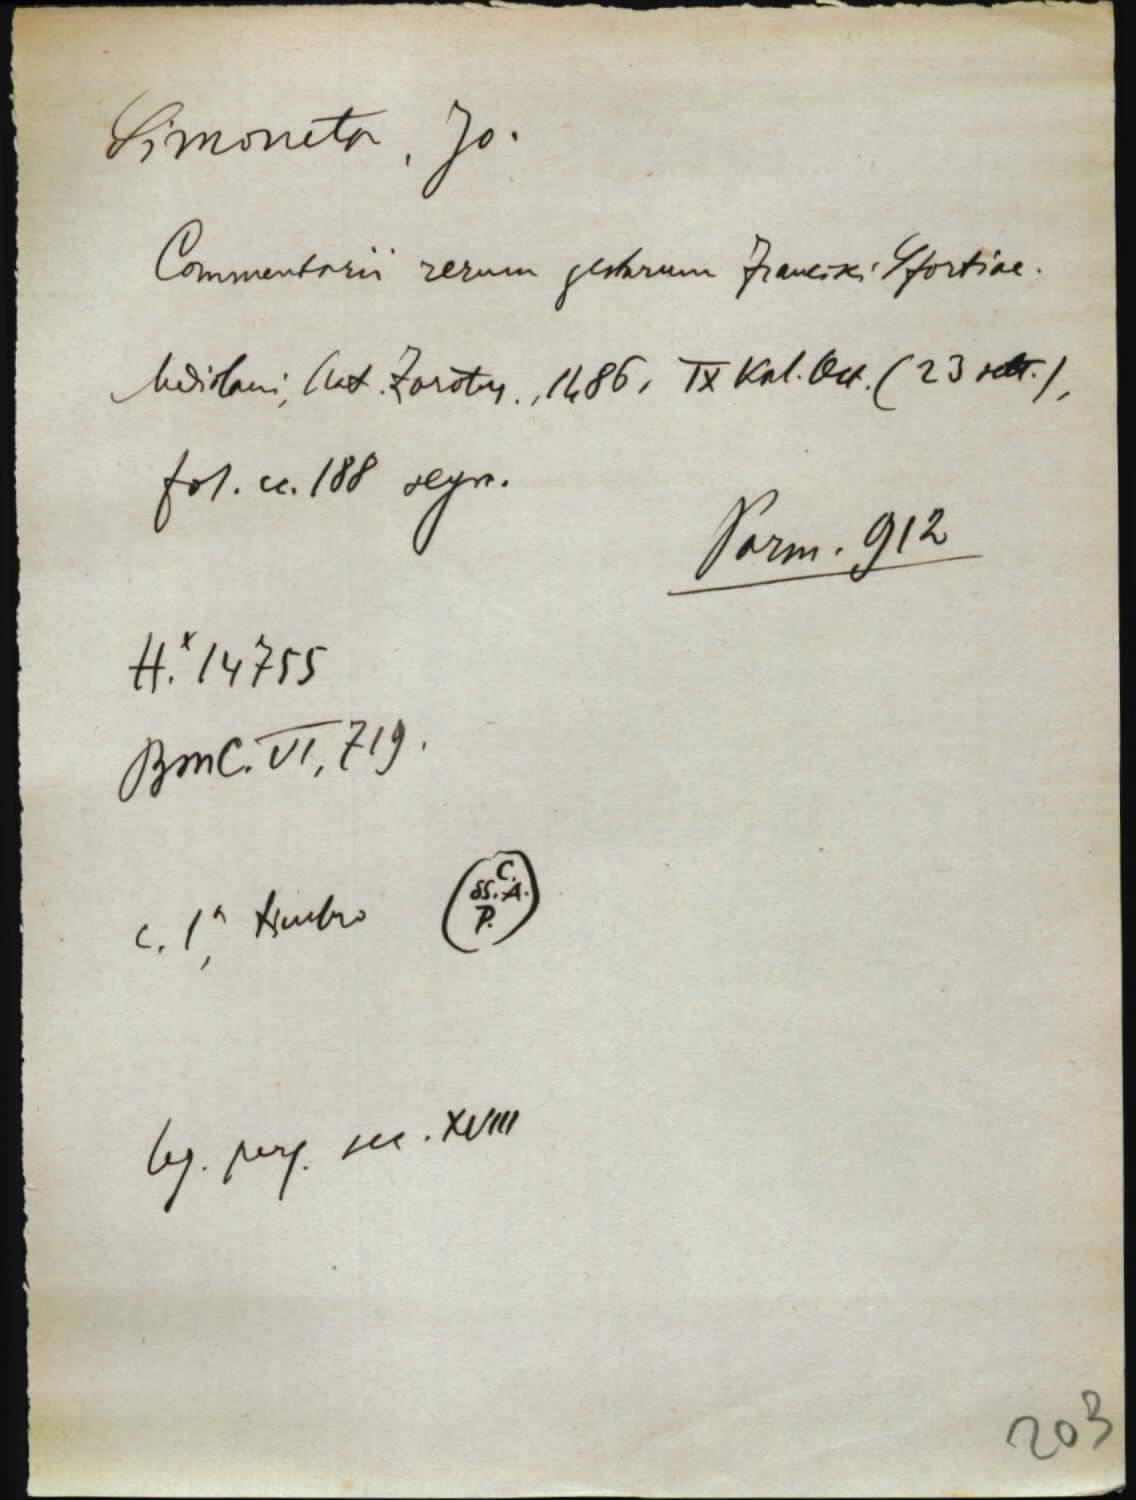 Simoneta, Jo.
Commentarii rerum gestarum Francisci Sfortiae.
Mediolani, Ant. Zarotus., 1486, IX Kal. Oct. (23 sett.),
fol. cc. 188 segn.
Parm. 912
H.x 14755
BMC. VI, 719.
c. 1a, timbro
C.
SS. A.
P.
leg. perg. sec. XVIII
203